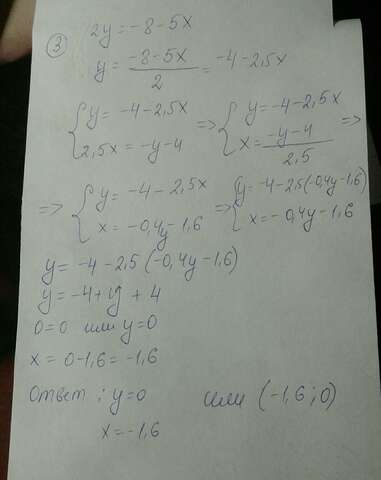 ③ 2y = -8-5x
y = \frac{-8-5x}{2} = -4-2,5x
{ y = -4-2,5x => { y = -4-2,5x =>
{ 2,5x = -y-4 { x = \frac{-y-4}{2,5}
=> { y = -4-2,5x => { y = -4-2,5(-0,4y-1,6)
{ x = -0,4y-1,6 { x = -0,4y-1,6
y = -4-2,5(-0,4y-1,6)
y = -4+1y+4
0=0 или y=0
x = 0-1,6 = -1,6
Ответ: y=0 или (-1,6; 0)
x = -1,6